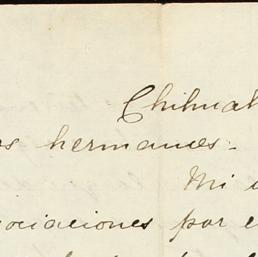 Chihuah
os hermanos:
Mi
ociaciones por e